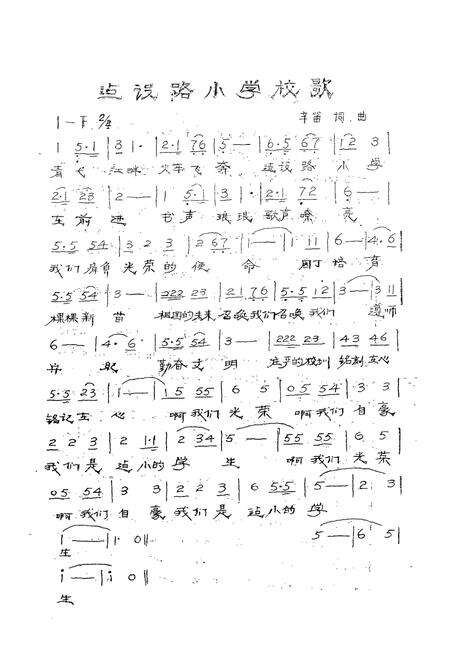 边设路小学校歌
1=F 2/4 辛笛 词 曲
1 5·1 | 3 1· | 2·1 76 | 5 — | 6·5 67 | 12 3 |
火车飞奔 边设路 小 学
2·1 23 | 2 — | 1 5· | 3 — | 2·1 72 | 6 — |
在 前 进 书 声 琅琅 歌声嘹 亮
5·5 54 | 3 2 3 | 2 67 | 1 — | 1 11 | 6 — | 4·6 |
我们肩负 光 荣 的 使 命 园丁 培 育
5·5 54 | 3 — | 222 23 | 21 76 | 5·5 12 | 3 — | 3 11 |
棵棵新 苗 祖国的未来 召唤我们 召唤 我们 遵师
6 — | 4 · 4 6 | 5·5 54 | 3 — | 222 23 | 43 46 |
勤奋文 明 庄严的校训 铭刻在心
5·5 23 | 1 — | 15 55 | 6 5 | 05 54 | 3 3 |
铭记在 心 啊我们 光 荣 啊我们 自 豪
2 2 3 | 2 1·1 | 2 34 | 5 — | 55 55 | 6 5 |
我们是 边小的 学 生 啊我们 光荣
05 54 | 3 3 | 2 2 3 | 6 5·5 | 5 — | 2 3 |
啊我们 自 豪 我们是 边小的 学
i — | i· 0 ‖ 5 — | 6 5 |
生
i — | i 0 ‖
生